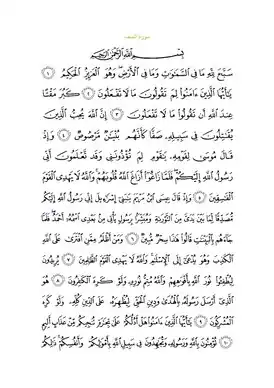 سورة الصف
بِسْمِ اللَّهِ الرَّحْمَٰنِ الرَّحِيمِ
سَبَّحَ لِلَّهِ مَا فِي السَّمَٰوَٰتِ وَمَا فِي الْأَرْضِ وَهُوَ الْعَزِيزُ الْحَكِيمُ ١
يَٰٓأَيُّهَا الَّذِينَ ءَامَنُوا لِمَ تَقُولُونَ مَا لَا تَفْعَلُونَ ٢ كَبُرَ مَقْتًا
عِندَ اللَّهِ أَن تَقُولُوا مَا لَا تَفْعَلُونَ ٣ إِنَّ اللَّهَ يُحِبُّ الَّذِينَ
يُقَٰتِلُونَ فِي سَبِيلِهِ صَفًّا كَأَنَّهُم بُنْيَٰنٌ مَّرْصُوصٌ ٤ وَإِذْ
قَالَ مُوسَىٰ لِقَوْمِهِ يَٰقَوْمِ لِمَ تُؤْذُونَنِي وَقَد تَّعْلَمُونَ أَنِّي
رَسُولُ اللَّهِ إِلَيْكُمْ فَلَمَّا زَاغُوا أَزَاغَ اللَّهُ قُلُوبَهُمْ وَاللَّهُ لَا يَهْدِي الْقَوْمَ
الْفَٰسِقِينَ ٥ وَإِذْ قَالَ عِيسَى ابْنُ مَرْيَمَ يَٰبَنِي إِسْرَٰٓءِيلَ إِنِّي رَسُولُ اللَّهِ إِلَيْكُم
مُّصَدِّقًا لِّمَا بَيْنَ يَدَيَّ مِنَ التَّوْرَىٰةِ وَمُبَشِّرًا بِرَسُولٍ يَأْتِي مِن بَعْدِي اسْمُهُ أَحْمَدُ فَلَمَّا
جَاءَهُم بِالْبَيِّنَٰتِ قَالُوا هَٰذَا سِحْرٌ مُّبِينٌ ٦ وَمَنْ أَظْلَمُ مِمَّنِ افْتَرَىٰ عَلَى اللَّهِ
الْكَذِبَ وَهُوَ يُدْعَىٰ إِلَى الْإِسْلَٰمِ وَاللَّهُ لَا يَهْدِي الْقَوْمَ الظَّٰلِمِينَ ٧ يُرِيدُونَ
لِيُطْفِـُٔوا نُورَ اللَّهِ بِأَفْوَٰهِهِمْ وَاللَّهُ مُتِمُّ نُورِهِ وَلَوْ كَرِهَ الْكَٰفِرُونَ ٨ هُوَ
الَّذِي أَرْسَلَ رَسُولَهُ بِالْهُدَىٰ وَدِينِ الْحَقِّ لِيُظْهِرَهُ عَلَى الدِّينِ كُلِّهِ وَلَوْ كَرِهَ
الْمُشْرِكُونَ ٩ يَٰٓأَيُّهَا الَّذِينَ ءَامَنُوا هَلْ أَدُلُّكُمْ عَلَىٰ تِجَٰرَةٍ تُنجِيكُم مِّنْ عَذَابٍ أَلِيمٍ
١٠ تُؤْمِنُونَ بِاللَّهِ وَرَسُولِهِ وَتُجَٰهِدُونَ فِي سَبِيلِ اللَّهِ بِأَمْوَٰلِكُمْ وَأَنفُسِكُمْ ذَٰلِكُمْ